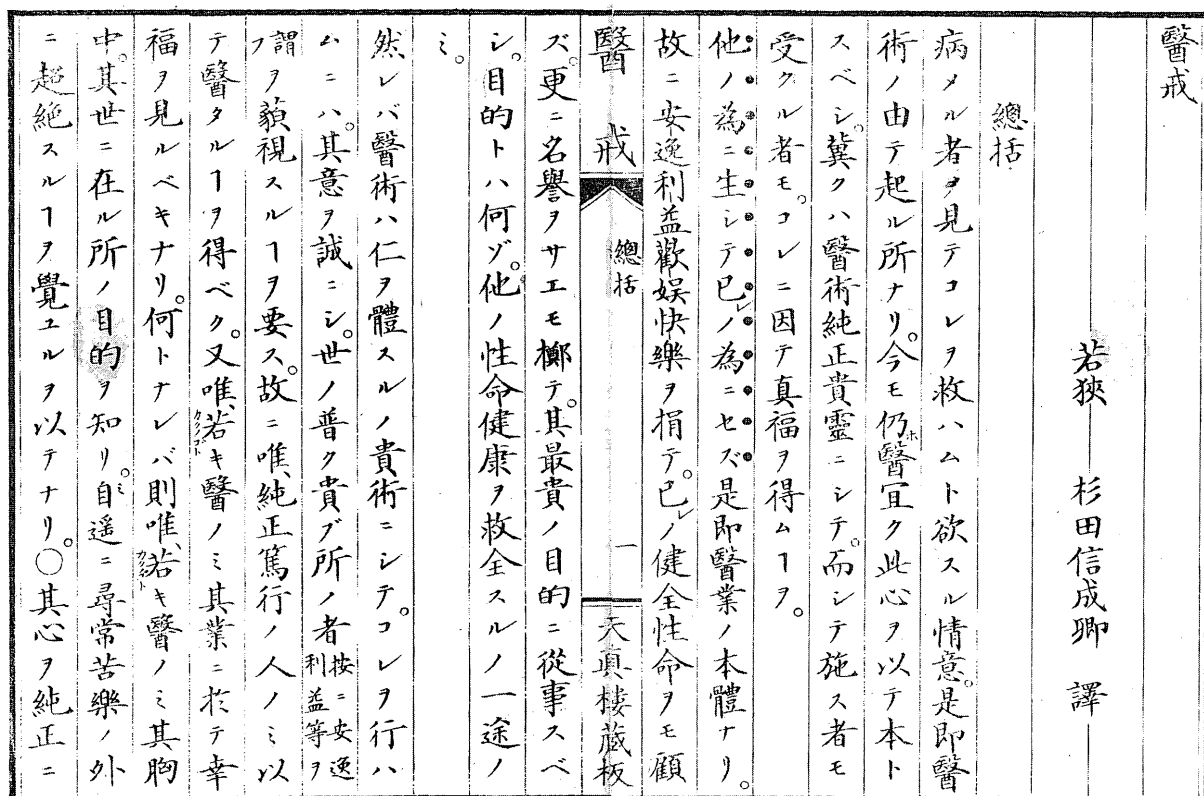 醫戒
若狹 杉田信成卿 譯
總括
病メル者ヲ見テコレヲ救ハムト欲スル情意。是即醫
術ノ由テ起ル所ナリ。今モ仍ホ醫宜ク此心ヲ以テ本ト
スベシ。冀クハ醫術純正貴靈ニシテ。而シテ施ス者モ
受クル者モ。コレニ因テ真福ヲ得ムヿヲ。
他ノ為ニ生シテ己レノ為ニセズ是即醫業ノ本體ナリ。
故ニ安逸利益歡娯快樂ヲ捐テ。己レノ健全性命ヲモ顧
醫戒 總括 一 天真樓蔵板
ズ。更ニ名譽ヲサエモ擲テ。其最貴ノ目的ニ從事スベ
シ。目的トハ何ゾ。他ノ性命健康ヲ救全スルノ一途ノ
ミ。
然レバ醫術ハ仁ヲ體スルノ貴術ニシテ。コレヲ行ハ
ムニハ。其意ヲ誠ニシ。世ノ普ク貴ブ所ノ者按ニ安逸利益等ヲ
謂フヲ藐視スルヿヲ要ス。故ニ唯、純正篤行ノ人ノミ以
テ醫タルヿヲ得ベク。又唯、若キカクノゴト醫ノミ其業ニ於テ幸
福ヲ見ルベキナリ。何トナレバ則唯、若キカクノゴト醫ノミ其胸
中。其世ニ在ル所ノ目的ヲ知リ。自ミ遥ニ尋常苦樂ノ外
ニ超絶スルヿヲ覺ユルヲ以テナリ。○其心ヲ純正ニ